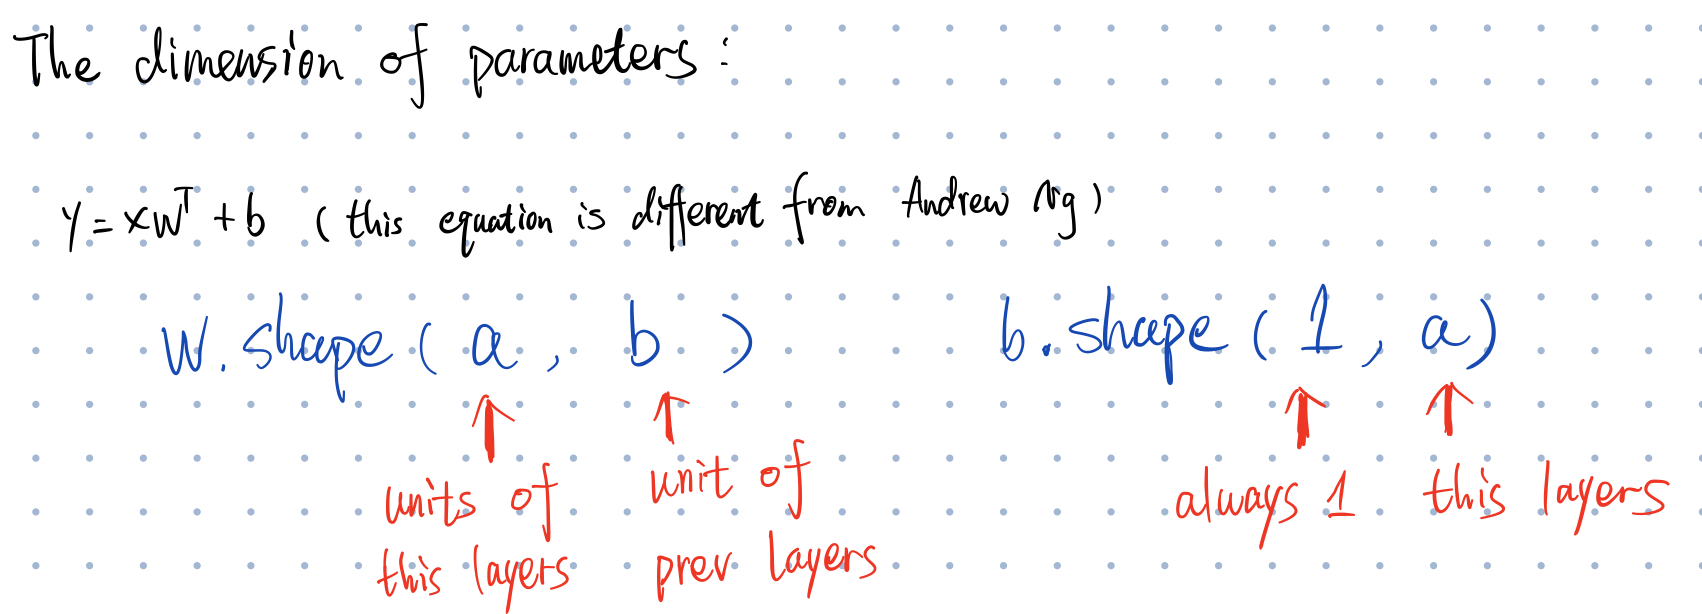 The dimension of parameters :
y = xw^T + b ( this equation is different from Andrew Ng )
W.shape ( a , b ) b.shape ( 1 , a )
units of this layers unit of prev layers always 1 this layers